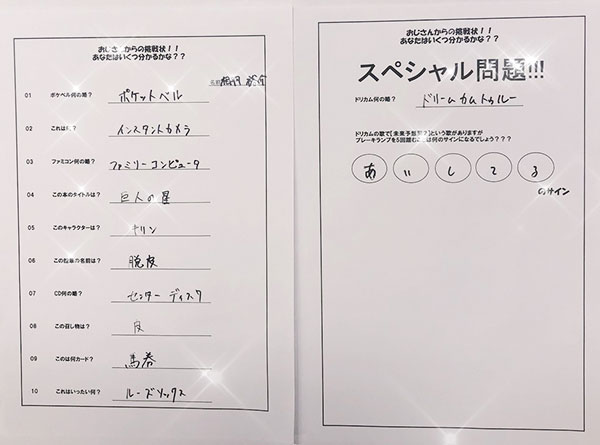 おじさんからの挑戦状！！
あなたはいくつ分かるかな？？
名前
01 ポケベル何の略？ ポケットベル
02 これは何？ インスタントカメラ
03 ファミコン何の略？ ファミリーコンピュータ
04 この本のタイトルは？ 巨人の星
05 このキャラクターは？ キリン
06 この の名前は？ 脱皮
07 CD何の略？ センターディスク
08 この召し物は？ 皮
09 このは何カード？ 馬券
10 これはいったい何？ ルーズソックス
おじさんからの挑戦状！！
あなたはいくつ分かるかな？？
スペシャル問題!!!
ドリカム何の略？ ドリームカムトゥルー
ドリカムの歌で[未来予想図2]という歌がありますが
ブレーキランプを5回踏む は何のサインになるでしょう？？？
あ い し て る
のサイン